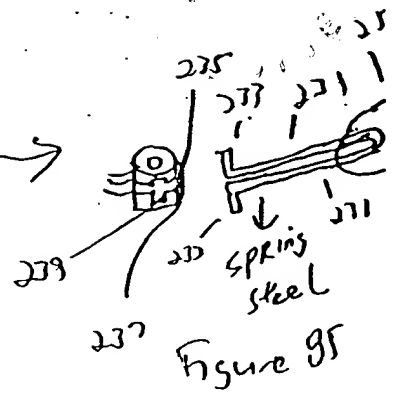 25
235
233
231
231
233
spring
steel
239
237
Figure 95